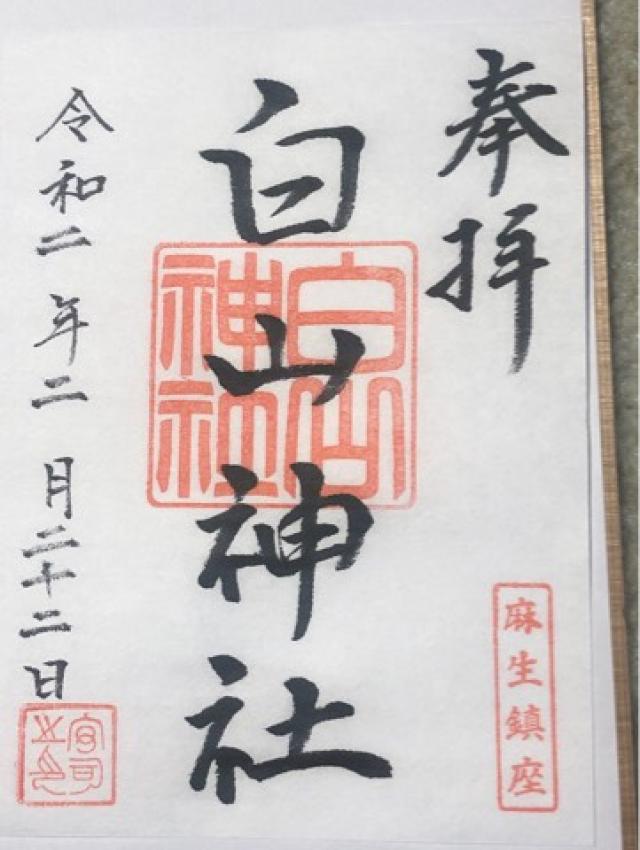 奉拝
麻生鎮座
白山神社
白山神社
令和二年二月二十二日
宮司之印